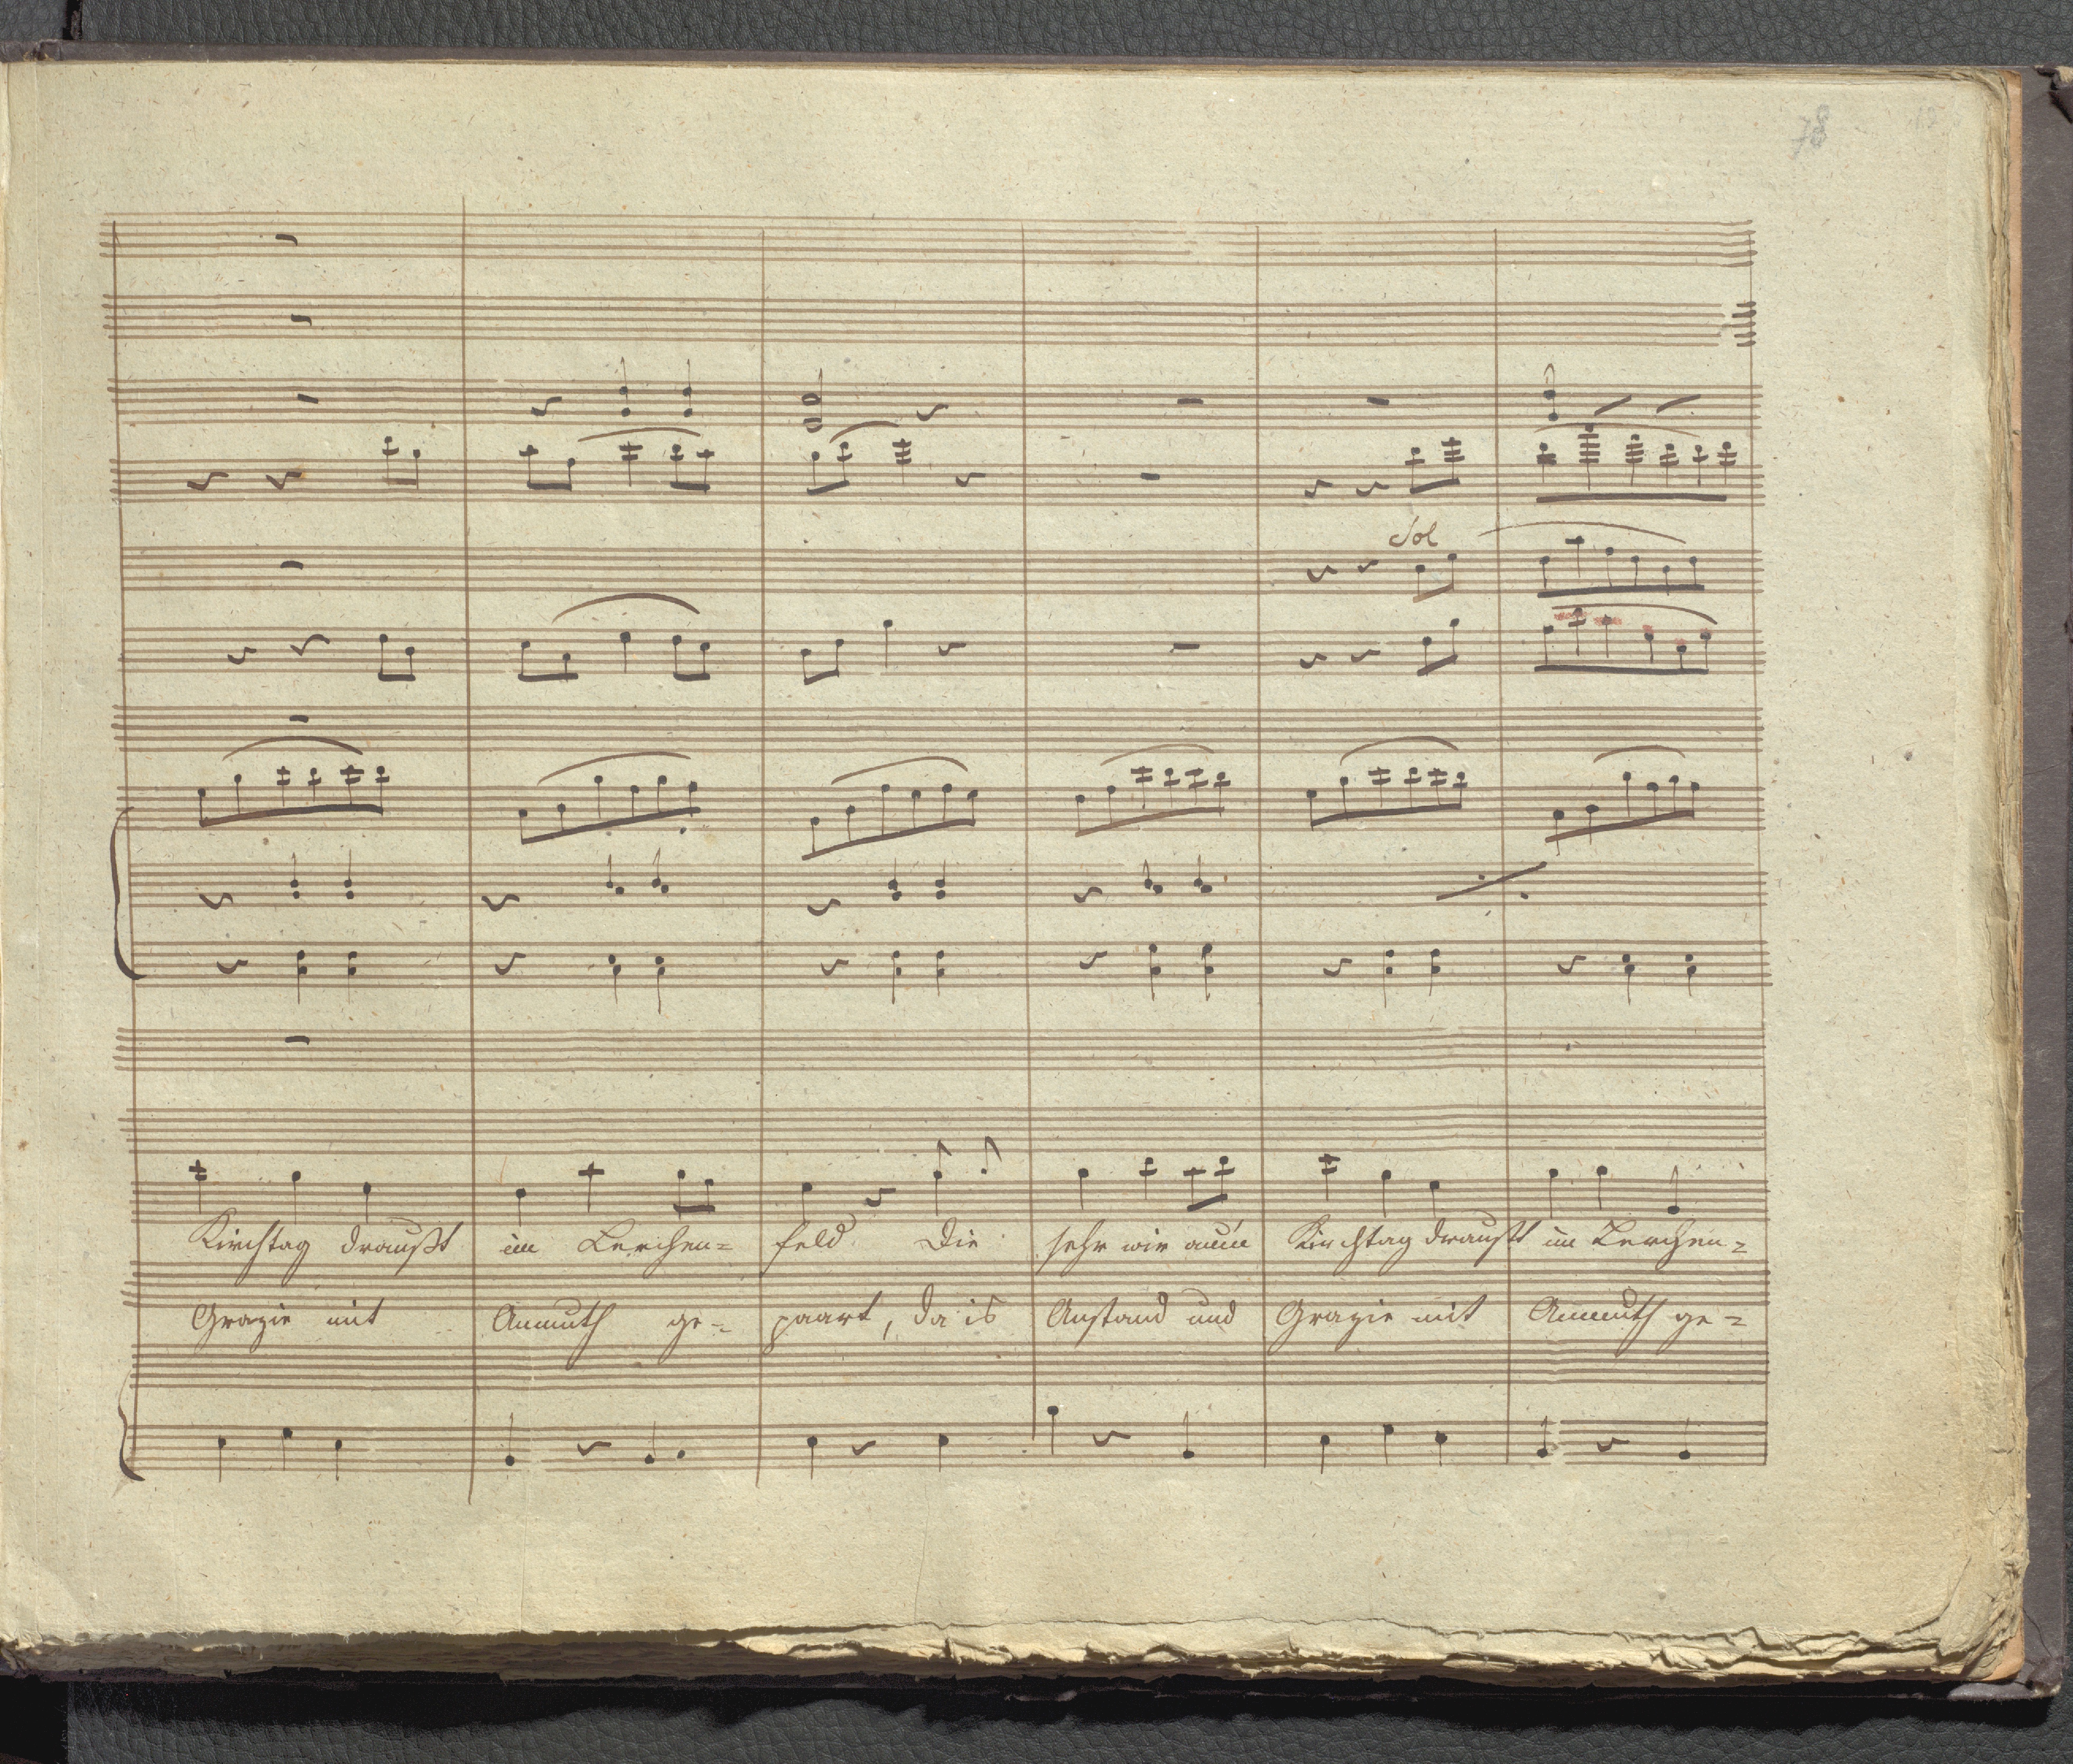 78
Sol
Kirchtag draußt im Lerchen= feld Die sehr wir Kirchtag draußt im Lerchen=
Grazie mit Anmuth ge= paart, da is Anstand und Grazie mit Anmuth ge=